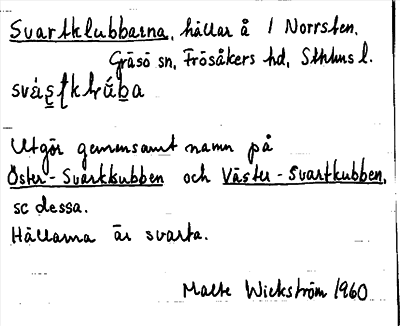 Svartklubbarna, hällar å / Norrsten.
Gräsö sn, Frösåkers hd, Sthlms l.
Utgör gemensamt namn på
Öster-Svartklubben och Väster-Svartkubben,
sc dessa.
Hällarna är svarta.
Malte Wickström 1960